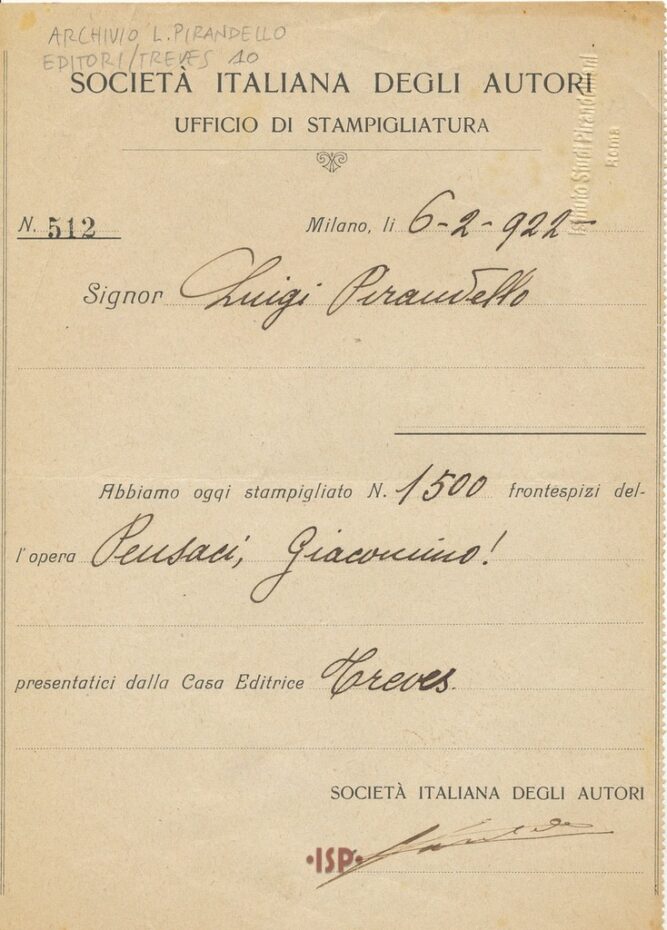 ARCHIVIO L. PIRANDELLO
EDITORI/TREVES 10
SOCIETÀ ITALIANA DEGLI AUTORI
UFFICIO DI STAMPIGLIATURA
Istituto Studi Pirandelliani
Roma
N. 512
Milano, lì 6-2-922-
Signor Luigi Pirandello
Abbiamo oggi stampigliato N. 1500 frontespizi del-
l'opera Pensaci, Giacomino!
presentatici dalla Casa Editrice Treves.
SOCIETÀ ITALIANA DEGLI AUTORI
•ISP•